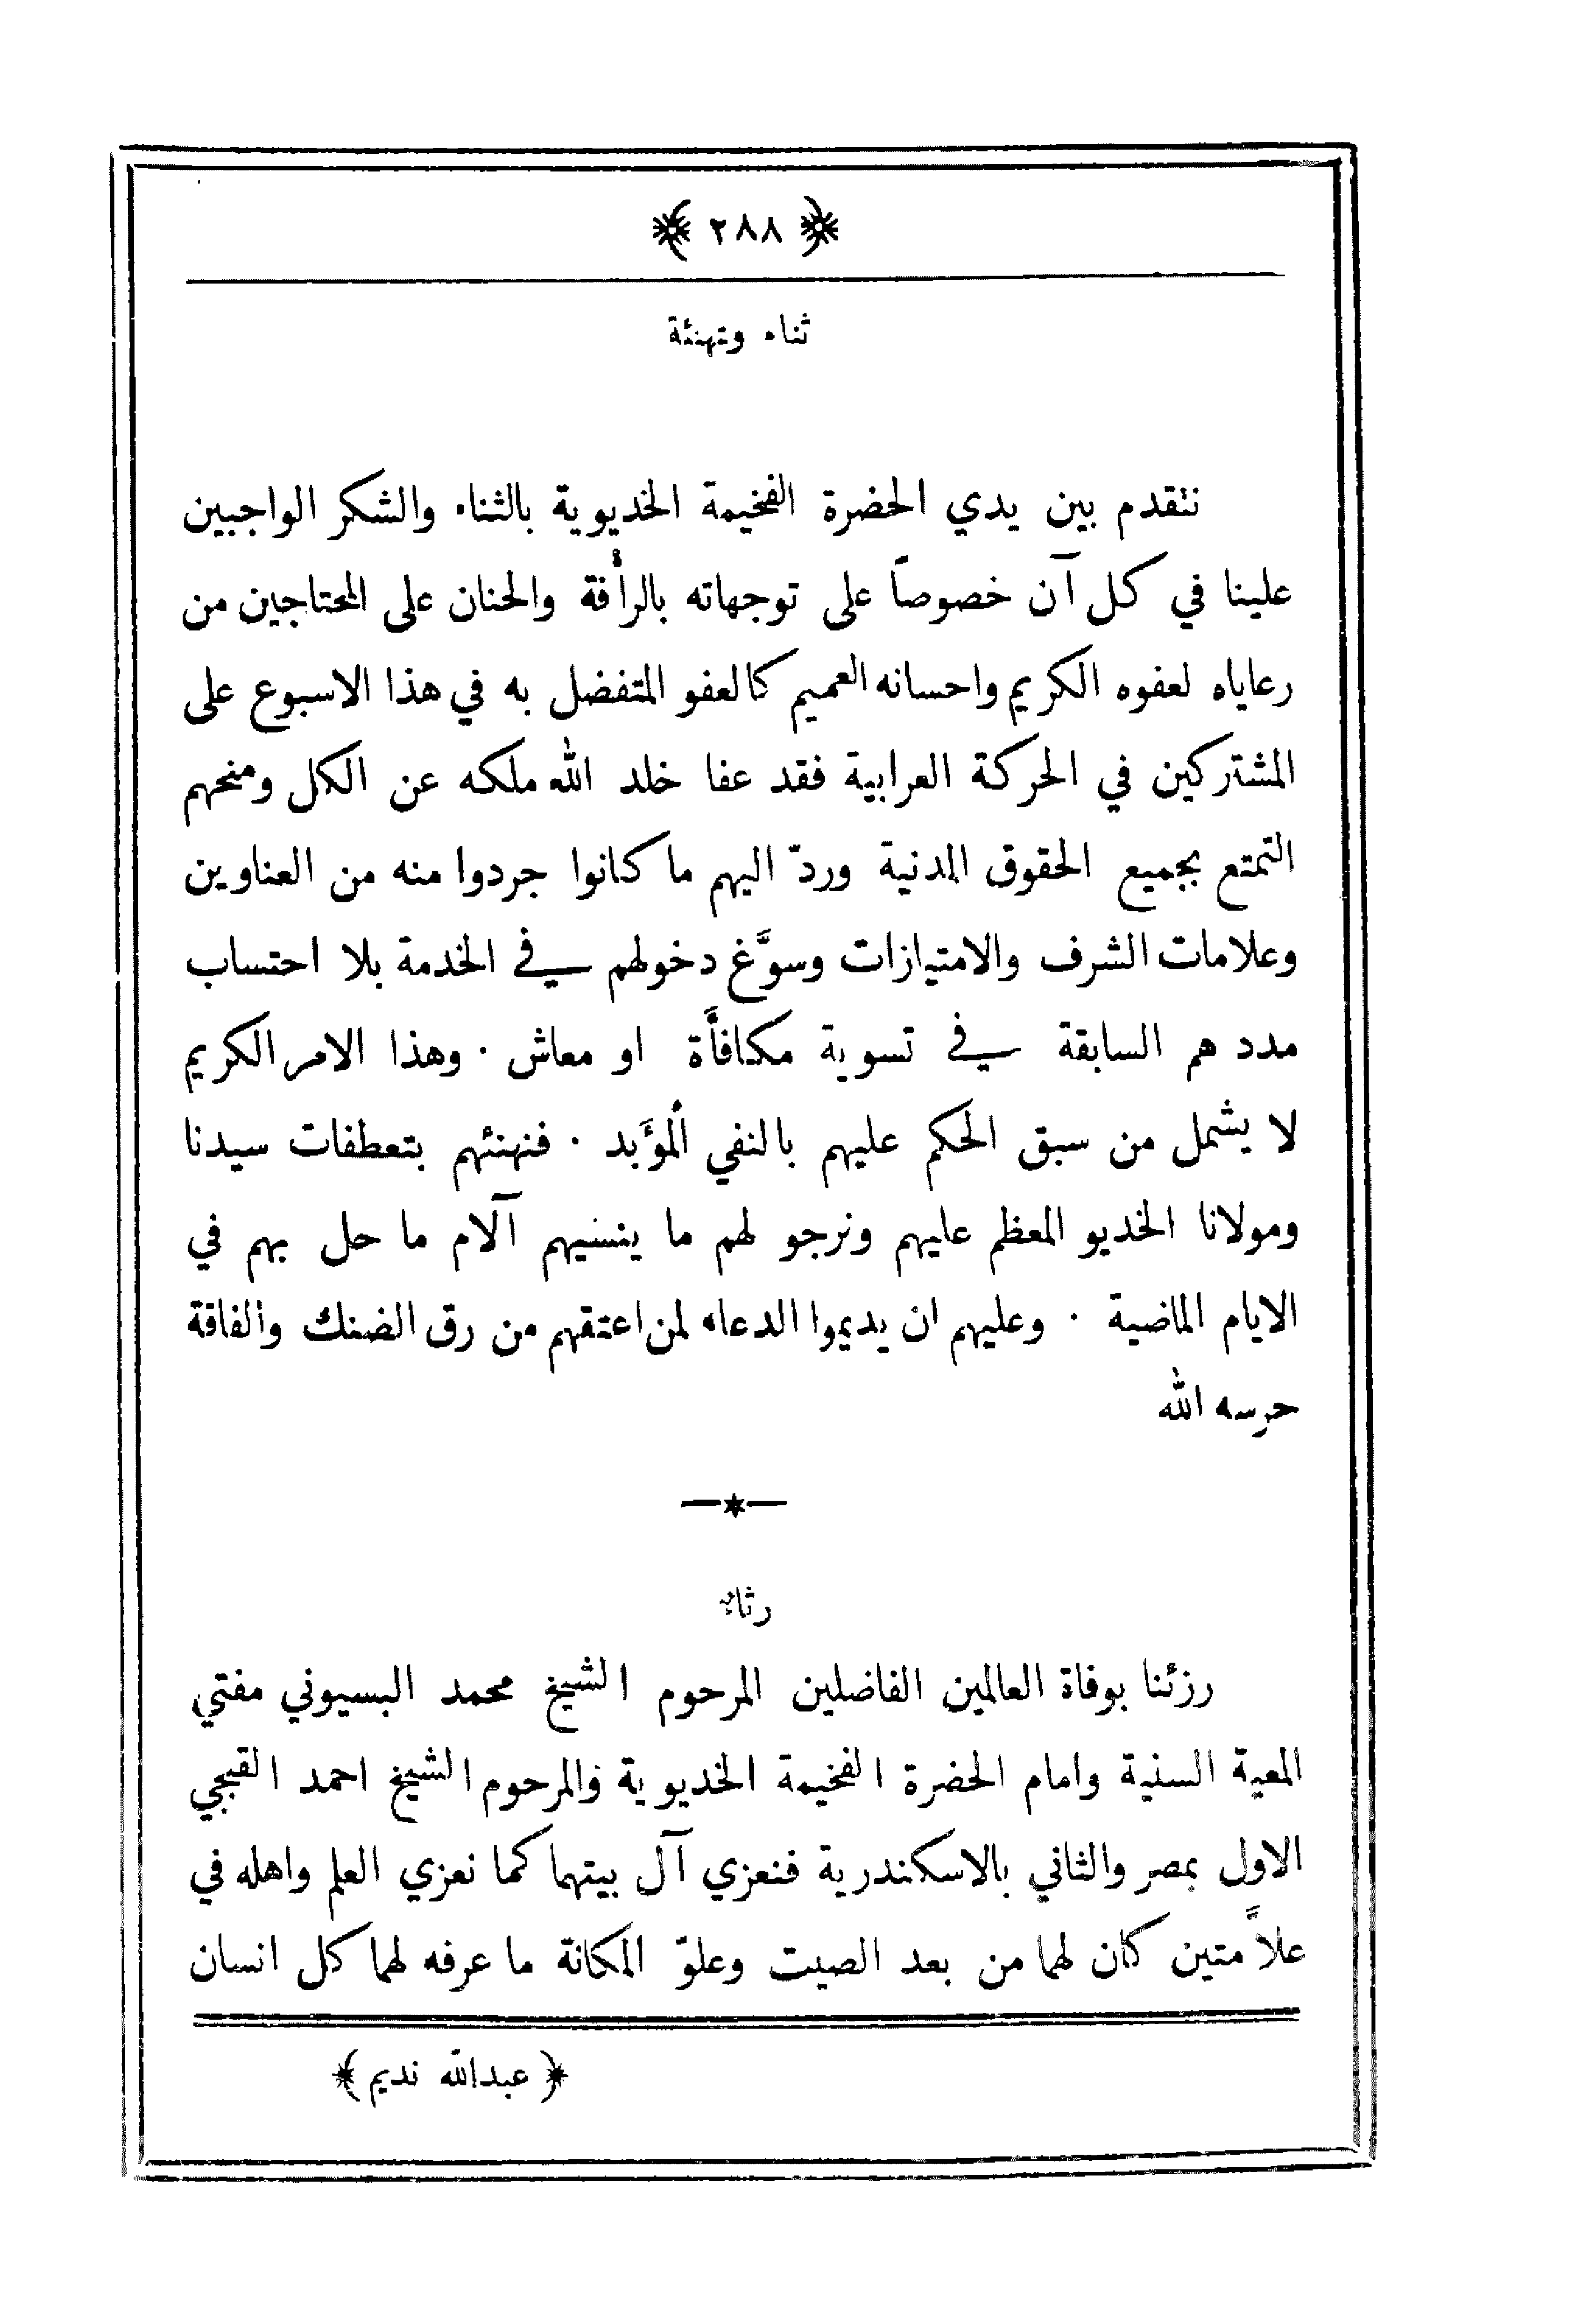 ﴿ ٢٨٨ ﴾
ثناء وتهنئة
نتقدم بين يدي الحضرة الفخيمة الخديوية بالثناء والشكر الواجبين
علينا في كل آن خصوصاً على توجهاته بالرأفة والحنان على المحتاجين من
رعاياه لعفوه الكريم واحسانه العميم كالعفو المتفضل به في هذا الاسبوع على
المشتركين في الحركة العرابية فقد عفا خلد الله ملكه عن الكل ومنحهم
التمتع بجميع الحقوق المدنية وردّ اليهم ما كانوا جردوا منه من العناوين
وعلامات الشرف والامتيازات وسوَّغ دخولهم في الخدمة بلا احتساب
مددهم السابقة في تسوية مكافأَة او معاش ٠ وهذا الامر الكريم
لا يشمل من سبق الحكم عليهم بالنفي المُؤَبد ٠ فنهنئهم بتعطفات سيدنا
ومولانا الخديو المعظم عليهم ونرجو لهم ما ينسيهم آلام ما حل بهم في
الايام الماضية ٠ وعليهم ان يديموا الدعاء لمن اعتقهم من رق الضنك والفاقة
حرسه الله
—*—
رثاءٌ
رزئنا بوفاة العالمين الفاضلين المرحوم الشيخ محمد البسيوني مفتي
المعية السنية وامام الحضرة الفخيمة الخديوية والمرحوم الشيخ احمد القبجي
الاول بمصر والثاني بالاسكندرية فنعزي آل بيتهما كما نعزي العلم واهله في
علاَّمتين كان لهما من بعد الصيت وعلوّ المكانة ما عرفه لهما كل انسان
﴿ عبدالله نديم ﴾